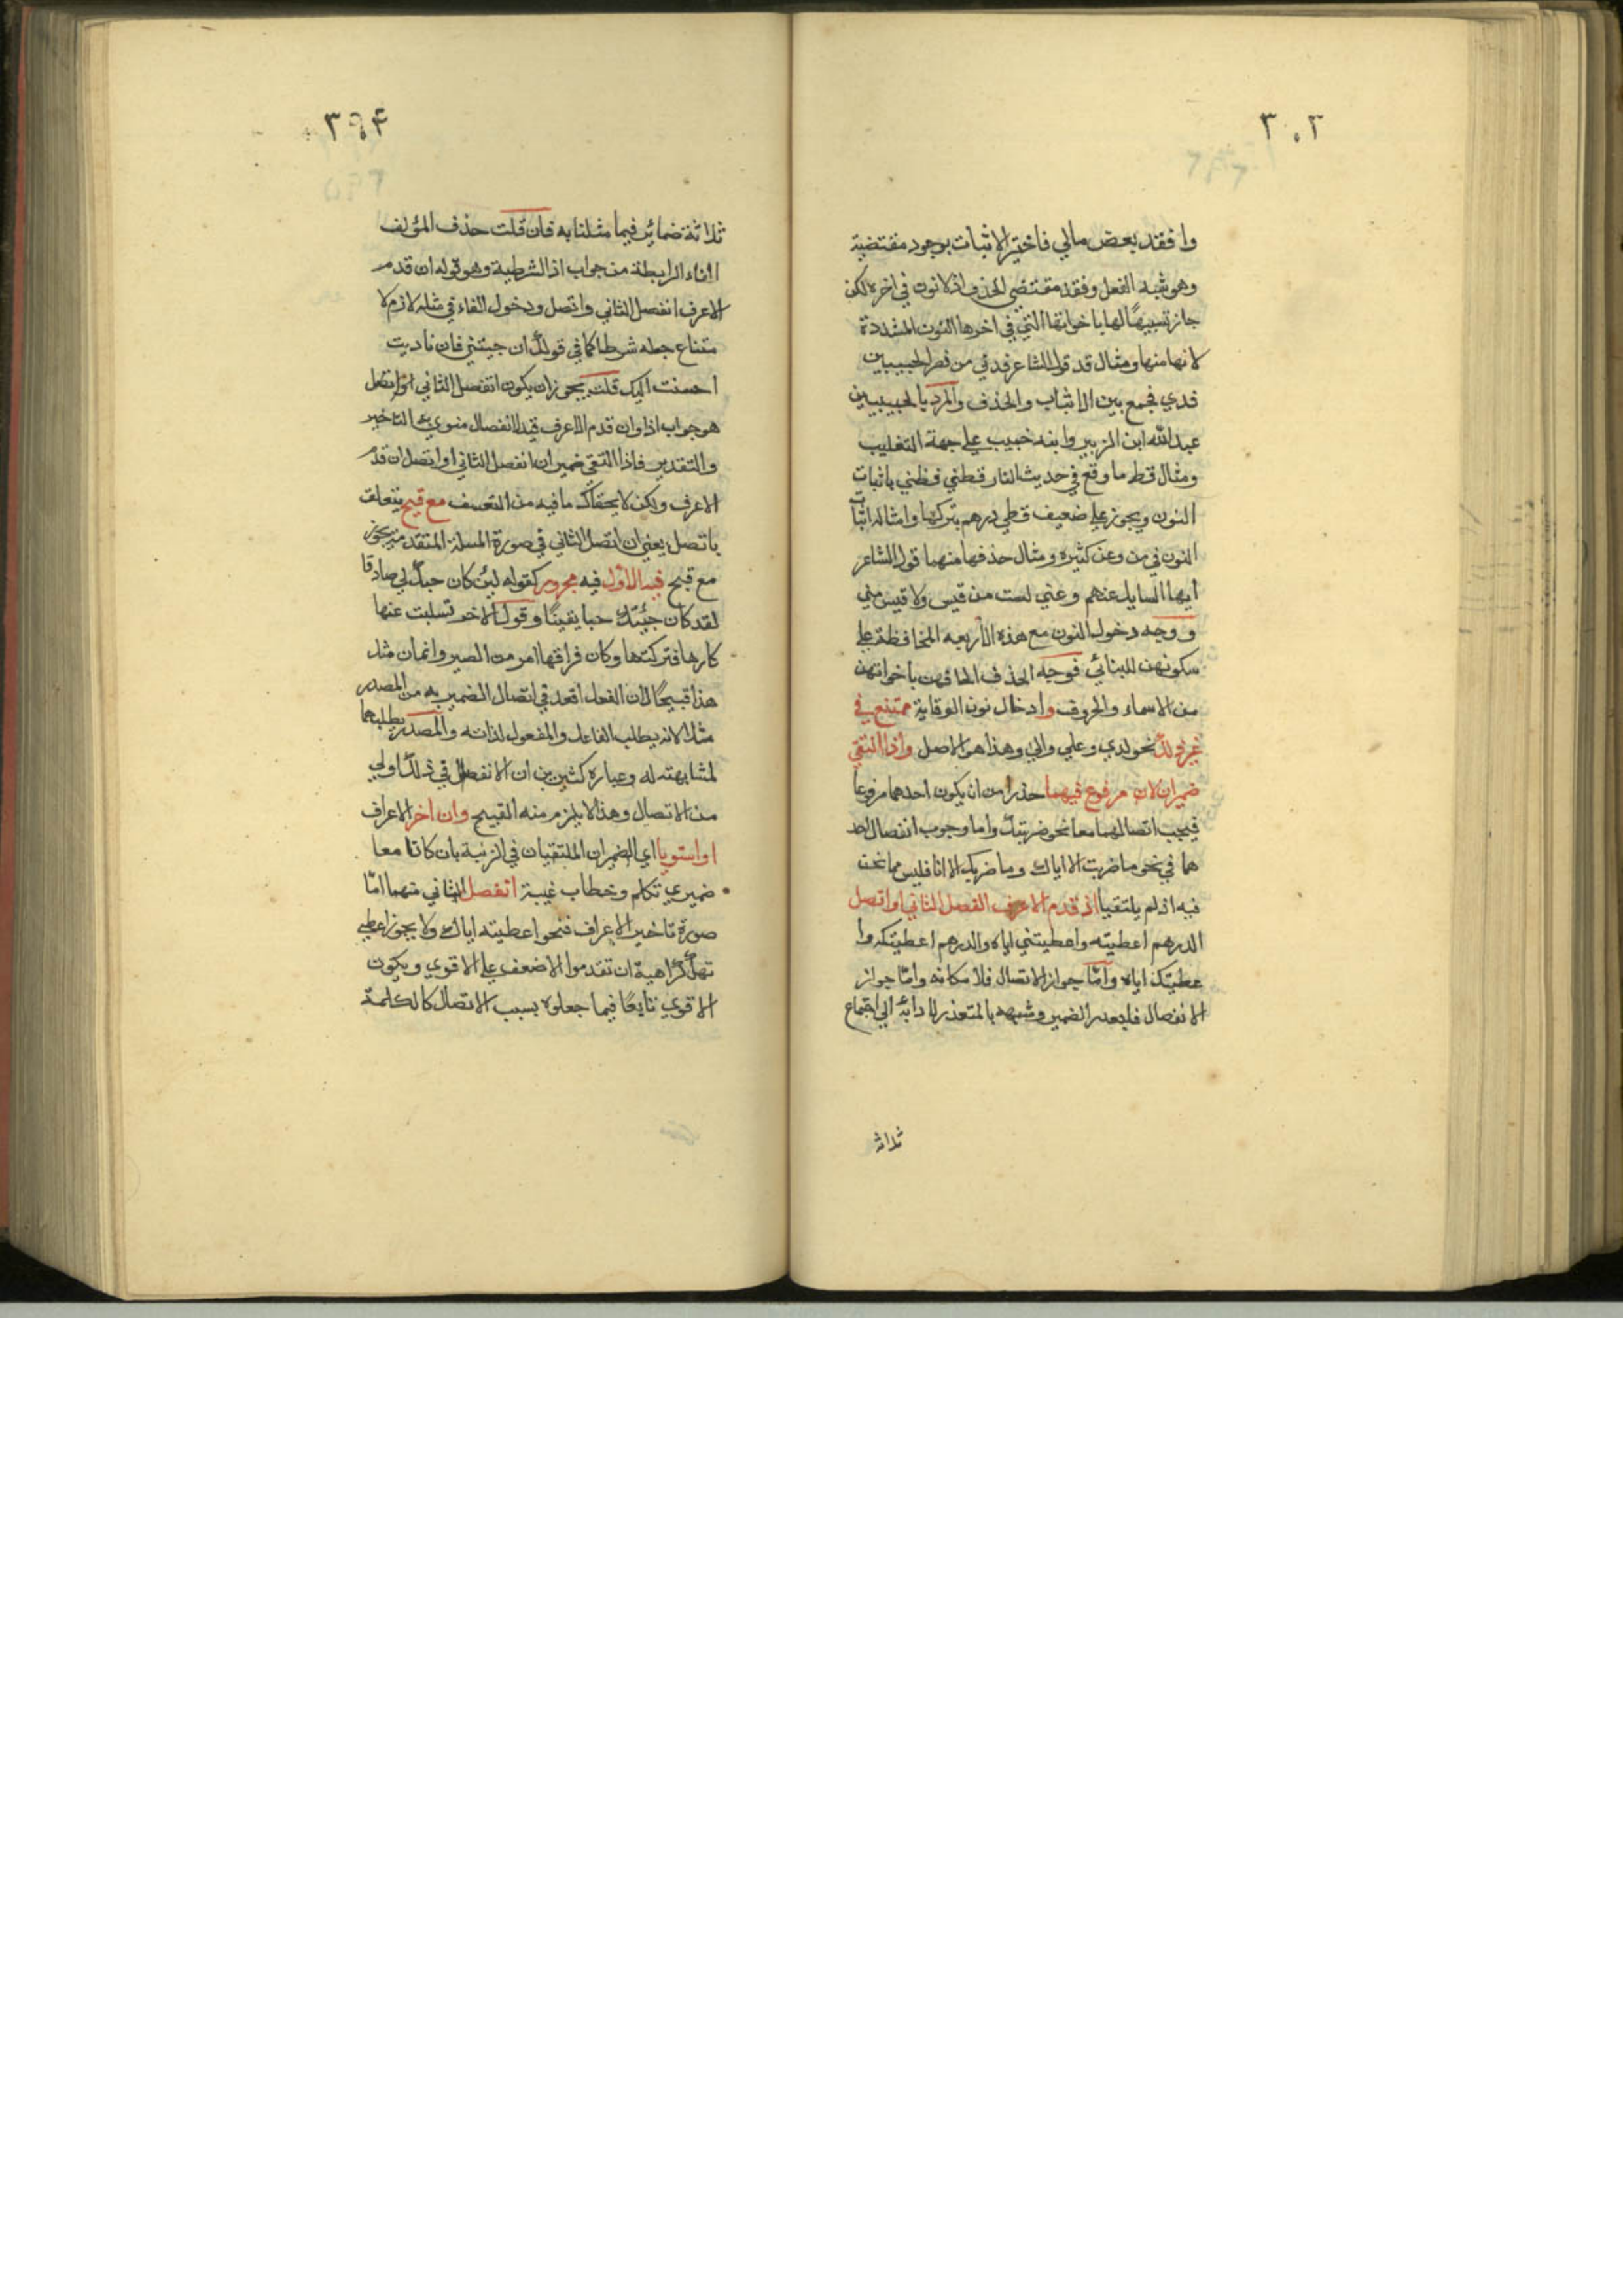 ٣٠٣
وافقد بعض مالي فاختير الاثبات بوجود مقتضية
وهو شبه الفعل وفقد مقتضى الحذف اذ لا نون في اخره لكن
جاز تشبيهًا لها باخواتها التي في اخرها النون المشددة
لانها منها ومثال قد قول الشاعر قدني من نصر الخبيبين
قدي فجمع بين الاثبات والحذف والمراد بالخبيبين
عبد الله ابن الزبير وابنه خبيب على جهة التغليب
ومثال قط ما وقع في حديث النار قطني قطني باثبات
النون ويجوز على ضعيف قطي درهم بتركها وامثال اثبات
النون في من وعن كثيره ومثال حذفها منهما قول الشاعر
ايها السايل عنهم وعني لست من قيس ولا قيس مني
ووجه دخول النون مع هذه الأربعه المحافظة على
سكونهن للبنائي فوجه الحذف الحاقهن باخواتهن
من الاسماء والحروف وادخال نون الوقاية ممتنع في
غير ذلك نحو لدي وعلي والي وهذا هو الاصل واذا التقى
ضميران لان مرفوع فيهما حذرا من ان يكون احدهما مرفوعا
فيجب اتصالهما معا نحو ضربتك واما وجوب انفصال احد
هما في نحو ما ضربت الا اياك وما ضربك الا انا فليس مما نحن
فيه اذ لم يلتقيا اذ قدم الاعرف انفصل الثاني او اتصل
الدرهم اعطيته واعطيتني اياه والدرهم اعطيتكه وا
عطيتك اياه وامّا جواز الاتصال فلامكانه وامّا جواز
الانفصال فلبعد الضمير وشبهه بالمتعذر لادائه الى اجتماع
ثلاثة
٣٠٤
ثلاثة ضمائر فيما مثلنا به فان قلت حذف المؤلف
الفاء الرابطة من جواب اذا الشرطية وهو قوله ان قدم
الاعرف انفصل الثاني واتصل ودخول الفاء في مثله لازم لا
متناع جعله شرطا كما في قولك ان جيتني فان ناديت
احسنت اليك قلت يجوز ان يكون انفصل الثاني او اتصل
هو جواب اذا وان قدم الاعرف قيد لانفصال منوي به التاخير
والتقدير فاذا التقى ضميران انفصل الثاني او اتصل ان قدم
الاعرف ولكن لا يخفاك ما فيه من التعسف مع قبح يتعلق
باتصل يعني ان اتصل الثاني في صورة المسلة المتقدمة يجوز
مع قبح فيما الأول فيه مجرور كقوله لئن كان حبك لي صادقا
لقد كان حبيك حبا يقينًا وقول الاخر تسلبت عنها
كارها فتركتها وكان فراقها امر من الصبر وانما ن مثل
هذا قبيحًا لان الفعل اقعد في اتصال الضمير به من المصدر
مثلا لانه يطلب الفاعل والمفعول لذاته والمصدر يطلبهما
لمشابهته له وعباره كثيرين ان الانفصال في ذلك اولى
من الاتصال وهذا لا يلزم منه القبيح وان اخر الاعراف
او استويا اي الضميران الملتقيان في الرتبة بان كانا معا
ضميري تكلم وخطاب غيبة انفصل الثاني منهما امّا
صورة تاخير الاعراف فنحو اعطيته اياك ولا يجوز اعطي
تهك كراهية ان تقدموا الاضعف على الاقوى ويكون
الاقوي تابعًا فيما جعلوه بسبب الاتصال كالكلمة